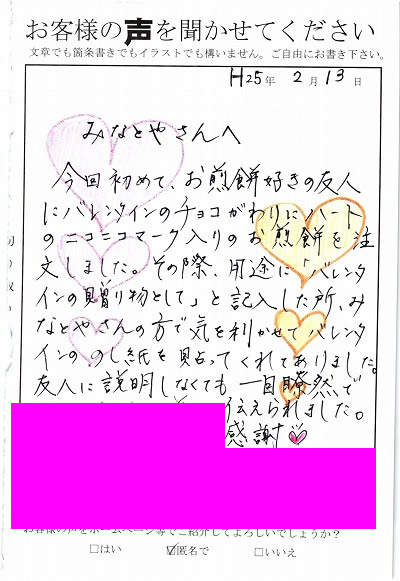 お客様の声を聞かせてください
文章でも箇条書きでもイラストでも構いません。ご自由にお書き下さい。
H25年 2月 13日
みなとやさんへ
今回初めて、お煎餅好きの友人
にバレンタインのチョコがわりにハート
のニコニコマーク入りのお煎餅を注
文しました。その際、用途に「バレンタ
インの贈り物として」と記入した所、み
なとやさんの方で気を利かせてバレンタ
インの のし紙を貼ってくれてありました。
友人に説明しなくても 一目瞭然で
伝えられました。
感謝
お客様の声をホームページ等でご紹介してよろしいでしょうか?
□はい ☑匿名で □いいえ